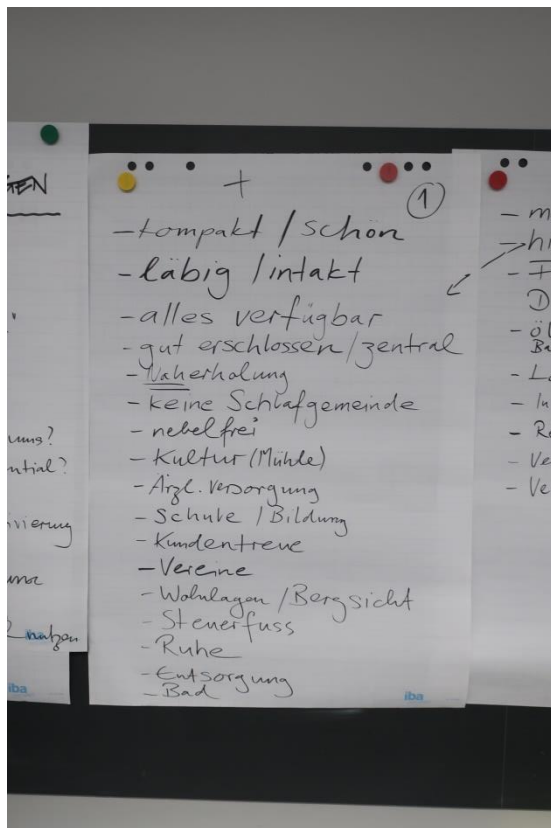 +
①
- kompakt / schön
- läbig / intakt
- alles verfügbar
- gut erschlossen / zentral
- Naherholung
- keine Schlafgemeinde
- nebelfrei
- Kultur (Mühle)
- Ärztl. Versorgung
- Schule / Bildung
- Kundentreue
- Vereine
- Wohnlagen / Bergsicht
- Steuerfuss
- Ruhe
- Entsorgung
- Bad
iba
iba